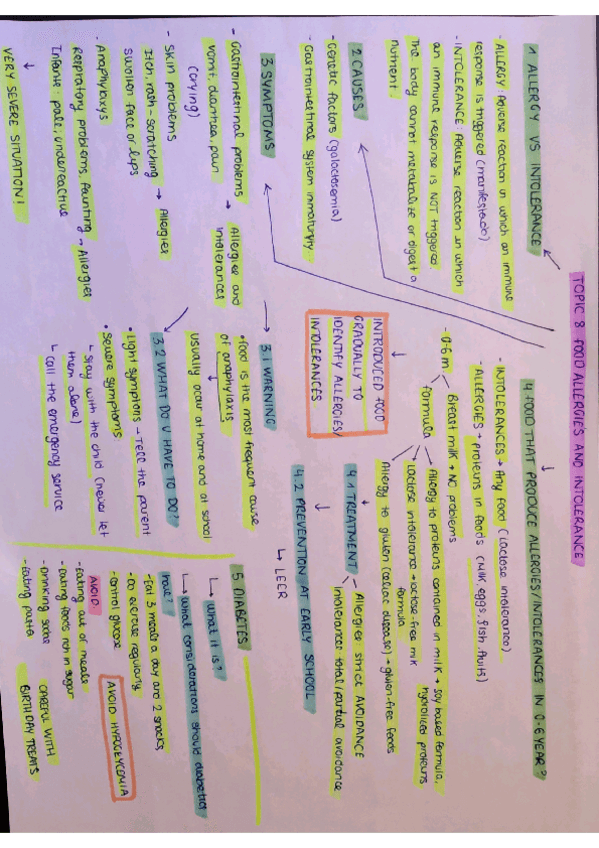 TOPIC 8 FOOD ALLERGIES AND INTOLERANCE
1 ALLERGY VS INTOLERANCE
- ALLERGY: Adverse reaction in which an immune
response is triggered (manifestado)
- INTOLERANCE Adverse reaction in which
an immune response is NOT triggered.
The body cannot metabolize or digest a
nutrient.
2 CAUSES
- Genetic factors (galactosemia)
- Gastrointestinal system inmaturity
3 SYMPTOMS
- Gastrointestinal problems → Allergies and
vomit, diarrhea, pain Intolerances
(crying)
- Skin problems
Itch, rash-scratching → Allergies
swollen face or lips
- Anaphylaxys
Respiratory problems, fainting → Allergies
Infants: pale, underreactive
↓
VERY SEVERE SITUATION!
3.1 WARNING
• Food is the most frequent cause
of anaphylaxis
usually occur at home and at school
3.2 WHAT DO U HAVE TO DO?
• Light symptoms → Tell the parent
• Severe symptoms
↳ Stay with the child (never let
them alone)
↳ Call the emergency service
4 FOOD THAT PRODUCE ALLERGIES/INTOLERANCES IN 0-6 YEAR?
- INTOLERANCES → Any food (lactose intolerance)
- ALLERGIES → proteins in foods (Milk, eggs, fish, fruits)
- 0-6 m
Breast milk → NO problems
formula
Allergy to proteins contained in milk → soy based formula,
hydrolized proteins
Lactose intolerance → lactose-free milk
formula
Allergy to gluten (celiac disease) → gluten-free foods
INTRODUCED FOOD
GRADUALLY TO
IDENTIFY ALLERGIES/
INTOLERANCES
4.1 TREATMENT
Allergies strict AVOIDANCE
Intolerances total/partial avoidance
4.2 PREVENTION AT EARLY SCHOOL
↳ LEER
5 DIABETES
↳ What it is?
↳ What considerations should diabetics
have?
- Eat 3 meals a day and 2 snacks
- Do exercise regularly
- Control glucose
AVOID HYPOGLYCEMIA
AVOID:
- Eating out of meals
- Eating foods rich in sugar
- Drinking soda
- Eating pasta
CAREFUL WITH
BIRTHDAY TREATS